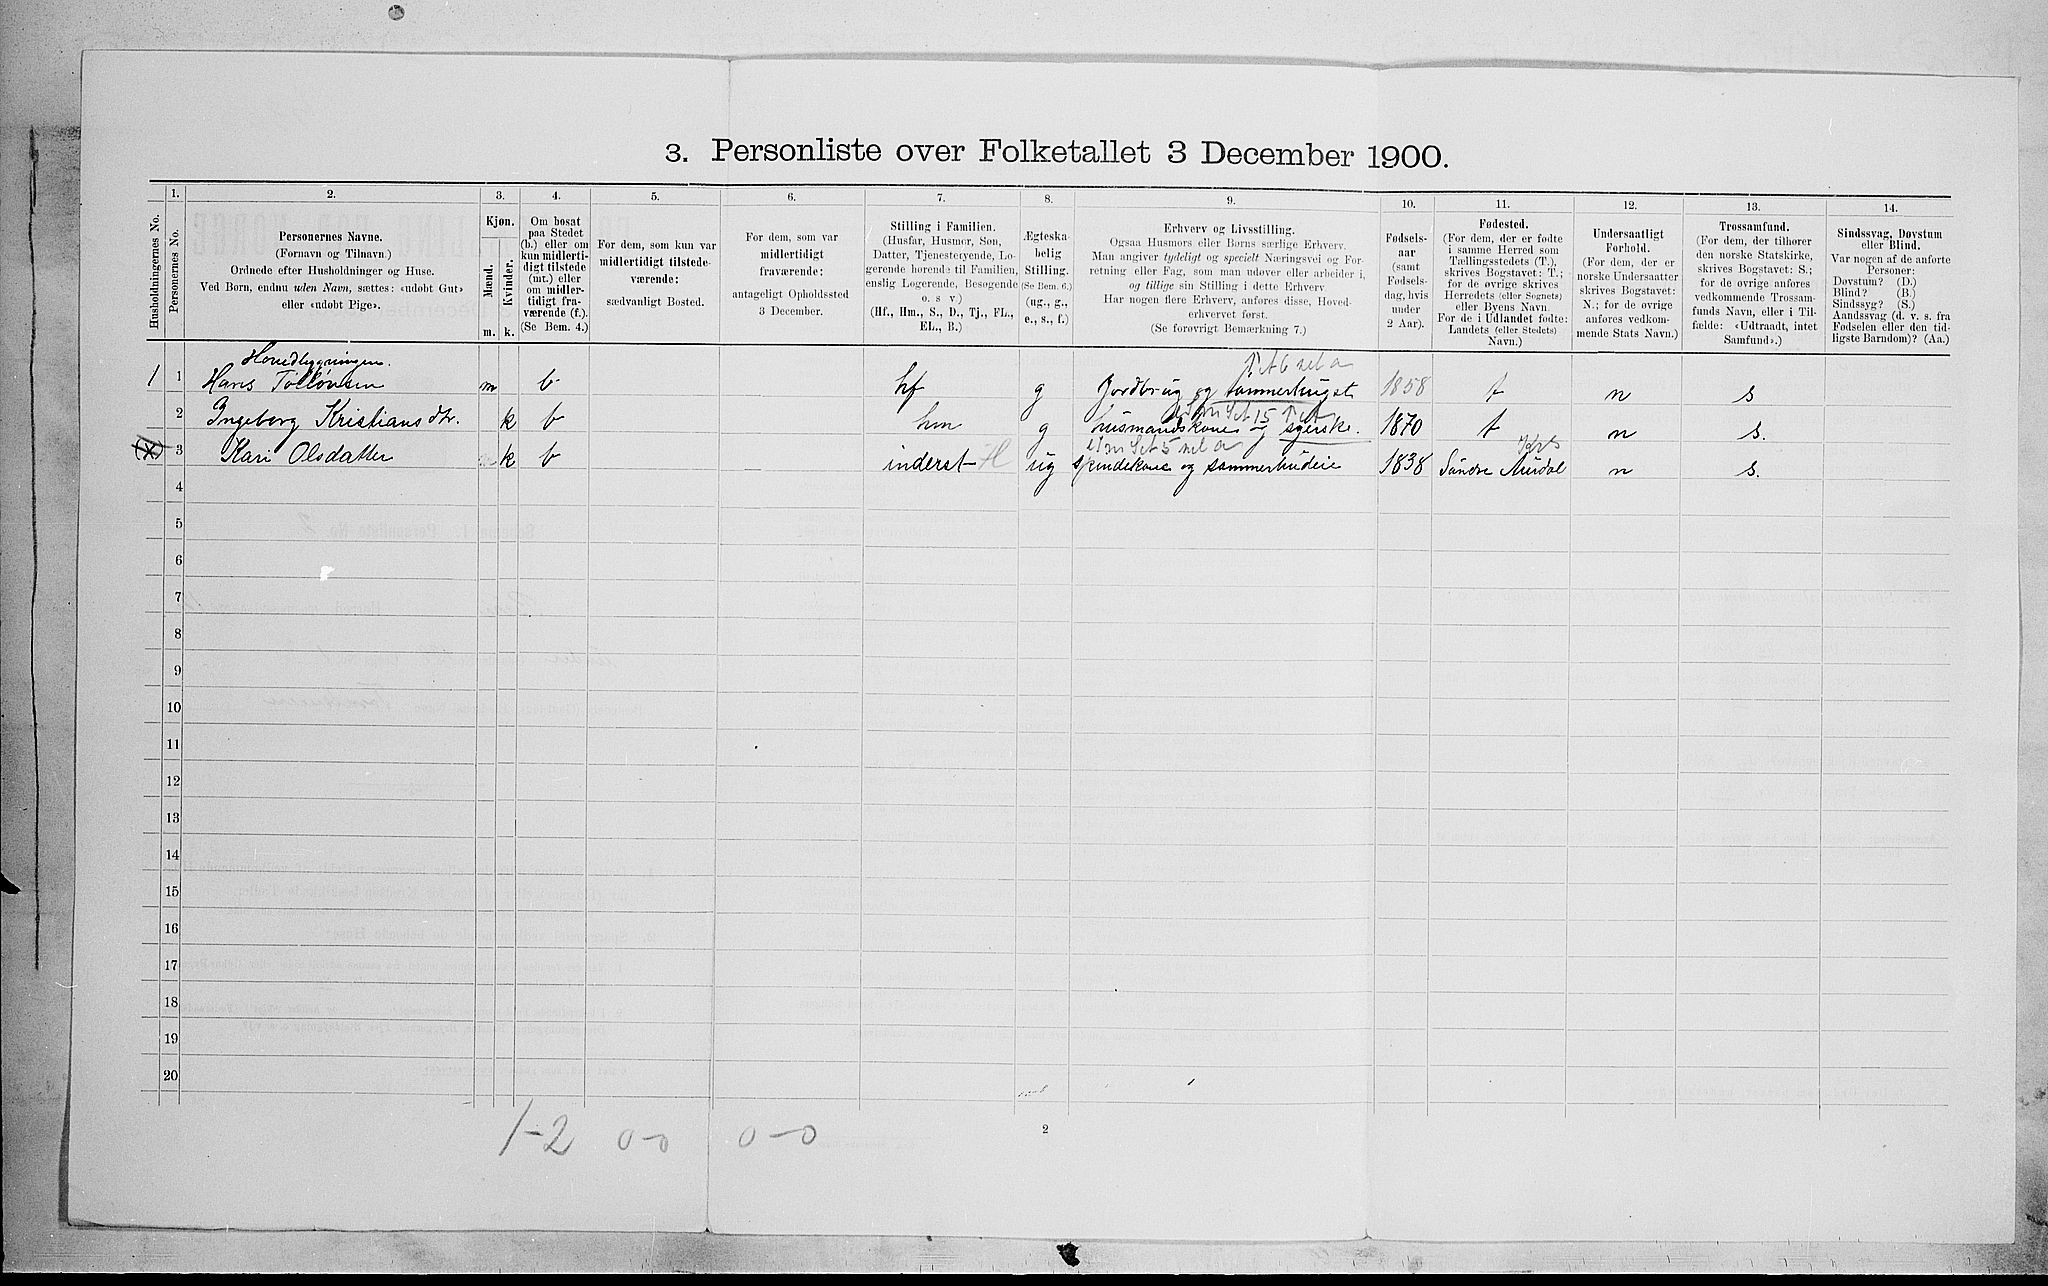 3. Personliste over Folketallet 3 December 1900.
Husholdningernes No.
1.
Personernes No.
2.
Personernes Navne.
(Fornavn og Tilnavn.)
Ordnede efter Husholdninger og Huse.
Ved Børn, endnu uden Navn, sættes: «udøbt Gut»
eller «udøbt Pige».
3.
Kjøn.
Mænd.
Kvinder.
m.
k.
4.
Om bosat
paa Stedet
(b.) eller om
kun midlerti-
digt tilstede
(mt.) eller
om midler-
tidigt fra-
værende (f.).
(Se Bem. 4.)
5.
For dem, som kun var
midlertidigt tilstede-
værende:
sædvanligt Bosted.
6.
For dem, som var
midlertidigt
fraværende:
antageligt Opholdssted
3 December.
7.
Stilling i Familien.
(Husfar, Husmor, Søn,
Datter, Tjenestetyende, Lo-
gerende hørende til Familien,
enslig Logerende, Besøgende
o. s v.)
(Hf., Hm., S., D., Tj., FL.,
EL., B.)
8.
Ægteska-
belig
Stilling.
(Se Bem. 6.)
(ug., g.,
e., s., f.)
9.
Erhverv og Livsstilling.
Ogsaa Husmors eller Børns særlige Erhverv.
Man angiver tydeligt og specielt Næringsvei og For-
retning eller Fag, som man udøver eller arbeider i,
og tillige sin Stilling i dette Erhverv.
Har nogen flere Erhverv, anføres disse, Hoved-
erhvervet først.
(Se forøvrigt Bemærkning 7.)
10.
Fødsels-
aar
(samt
Fødsels-
dag, hvis
under
2 Aar).
11.
Fødested.
(For dem, der er fødte
i samme Herred som
Tællingsstedets (T.),
skrives Bogstavet: T.;
for de øvrige skrives
Herredets (eller Sognets)
eller Byens Navn.
For de i Udlandet fødte:
Landets (eller Stedets)
Navn.)
12.
Undersaatligt
Forhold.
(For dem, der er
norske Undersaatter
skrives Bogstavet:
N.; for de øvrige
anføres vedkom-
mende Stats Navn.)
13.
Trossamfund.
(For dem, der tilhører
den norske Statskirke,
skrives Bogstavet: S.;
for de øvrige anføres
vedkommende Trossam-
funds Navn, eller i Til-
fælde: «Udtraadt, intet
Samfund».)
14.
Sindssvag, Døvstum
eller Blind.
Var nogen af de anførte
Personer:
Døvstum? (D.)
Blind? (B.)
Sindssyg? (S.)
Aandssvag (d. v. s. fra
Fødselen eller den tid-
ligste Barndom)? (Aa.)
Hovedbygningen.
1 1 Hans Tollövsen m b hf g Jordbrug og tömmerhugst 1858 t n s
2 Ingeborg Kristiansdtr. k b hm g husmandskone og syerske. 1870 t n s.
3 Kari Olsdatter k b inderst ug spindekone og sommerbudeie 1838 Söndre Aurdal n s.
4
5
6
7
8
9
10
11
12
13
14
15
16
17
18
19
20
1-2 0-0 0-0
2